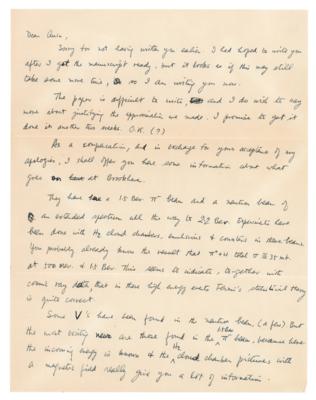 Dear Anin,
Sorry for not having written you earlier. I had hoped to write you
after I got the manuscript ready, but it looks as if this may still
take some more time, so I am writing you now.
The paper is difficult to write, and I do wish to say
more about justifying the approximation we made. I promise to get it
done in another two weeks. O.K. (?)
As a compensation, and in exchange for your acceptance of my
apologies, I shall offer you here some information about what
goes on here at Brookhaven.
They have a 1.5 Bev π⁻ beam and a neutron beam of
an extended spectrum all the way to 2.2 Bev. Experiments have
been done with H₂ cloud chambers, emulsions & counters in these beams.
You probably already know the result that π⁻+H total σ ≅ 35 mb.
at 500 Mev. & 1.5 Bev. This seems to indicate, together with
cosmic ray data, that in these high energy events Fermi's statistical theory
is quite correct.
Some V's have been found in the neutron beam, (a few). But
the most exciting news are those found in the 1.5 Bev π⁻ beam, because here
the incoming energy is known & the H₂ cloud chamber pictures with
a magnetic field really give you a lot of information.